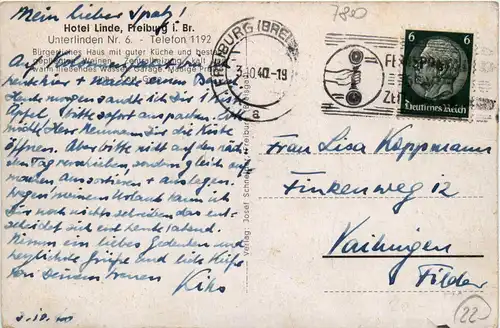 Mein lieber Spatz!
Hotel Linde, Freiburg i. Br.
Unterlinden Nr. 6. - Telefon 1192
Bürgerliches Haus mit guter Küche und best
gepflegten Weinen. Zentralheizung, kalt
warm fließendes Wasser. Garage. Mäßige Preise
Heute morgen sandte ich Dir 1 Kiste
Äpfel, bitte sofort auspacken. Bitte
möchte Herr Neumann Dir die Kiste
öffnen. Aber bitte nicht auf den näch-
sten Tag verschieben, sondern gleich auf-
machen, aussortieren + auslegen.
Wegen meinem Urlaub kann ich
Dir noch nichts schreiben das ent-
scheidet sich erst heute abend.
Nimm ein liebes Gedenken und
herzliche Grüße und viele Küsse
von Deinem treuen
3.10.40
Verlag: Josef Schneider, Freiburg
7800
FREIBURG (BREISGAU)
3.10.40.-19
a
6 6
Deutsches Reich
Frau Lisa Koppmann
Finkenweg 12
Vaihingen
Filder
22